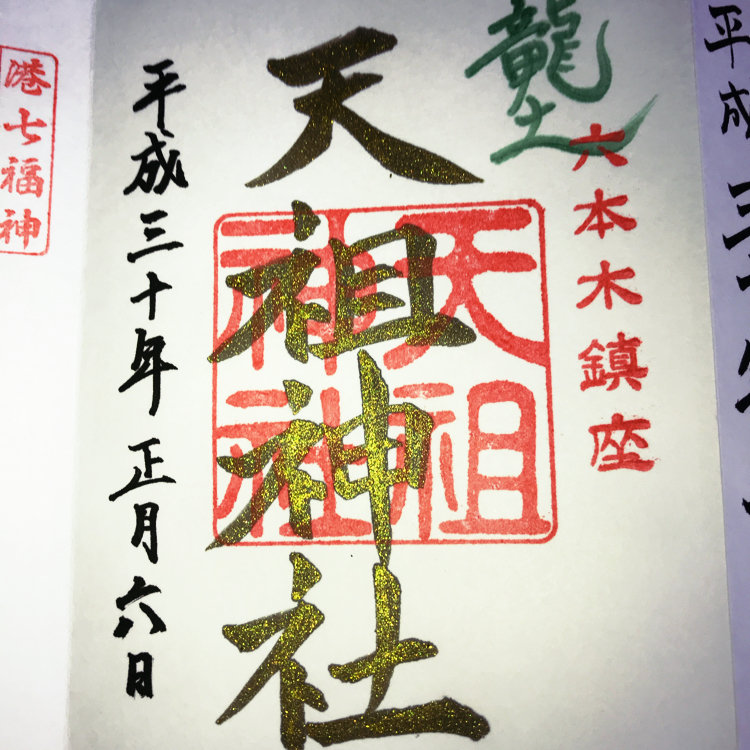 平成三
龍土
六本木鎮座
天祖神社
天祖
神社
平成三十年正月六日
港七福神